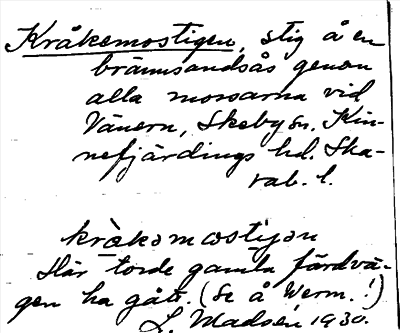 Kråkemostigen, stig å en
brännsandsås genom
alla mossarna vid
Vänern, Skeby sn. Kin-
nefjärdings hd. Ska-
rab. l.
kråkamostijən
Här torde gamla färdvä-
gen ha gått. (Se å Werm.!)
L. Madsén 1930.